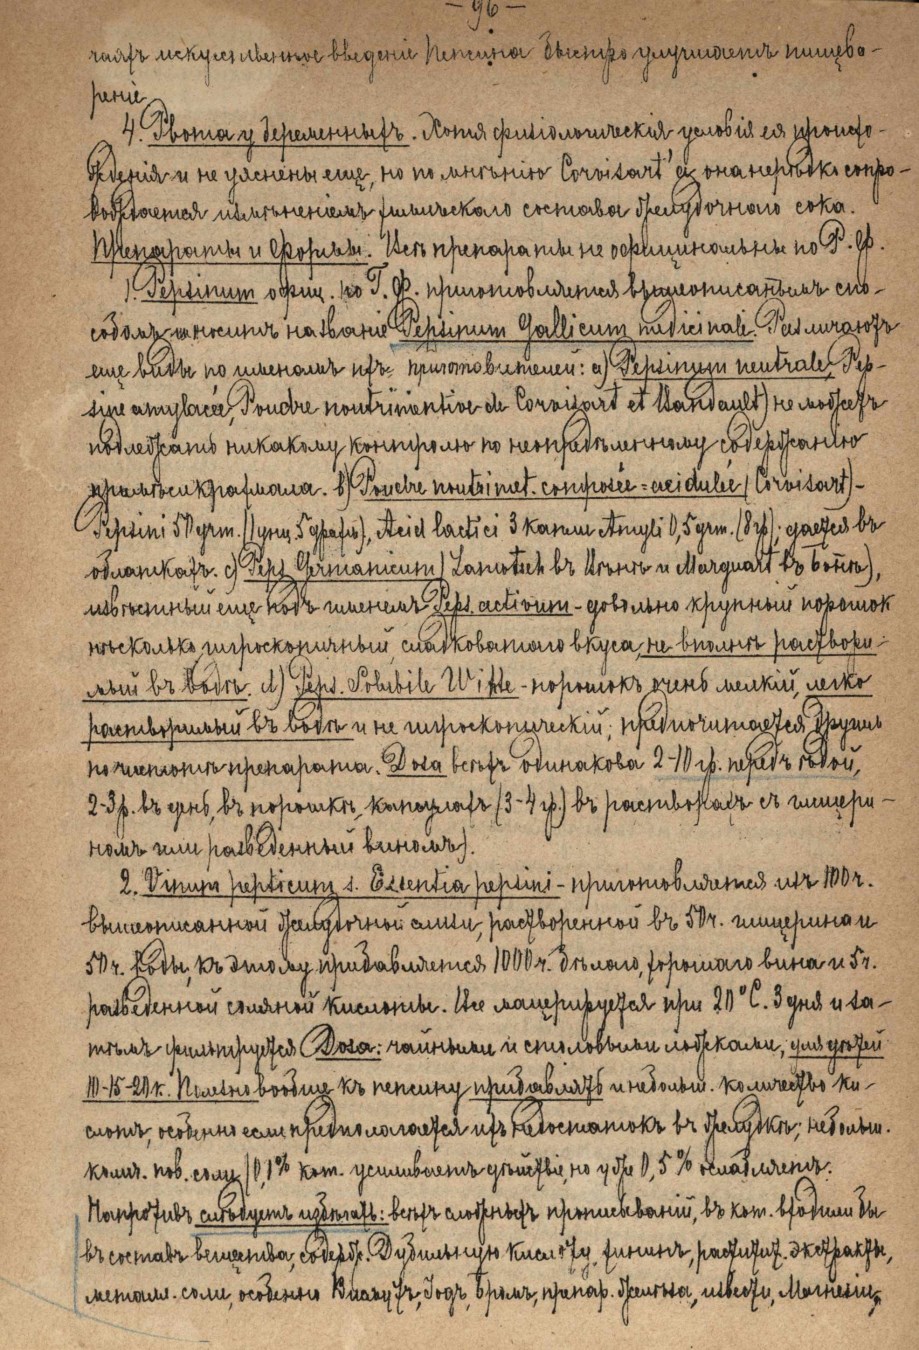 — 96 —
чаяхъ искусственное введеніе Пепсина быстро улучшаетъ пищева-
реніе.
4. Рвота у беременныхъ. Хотя физіологическія условія ея происхо-
жденія и не уяснены еще, но по мнѣнію Corvisart'а, она нерѣдко сопро-
вождается измѣненіемъ химическаго состава желудочнаго сока.
Препараты и формы. Всѣ препараты не оффицинальны по Р. Ф.
1. Pepsinum офиц. по Г. Ф. приготовляется вышеописаннымъ спо-
собомъ и носитъ названіе Pepsinum Gallicum medicinale. Различаютъ
еще виды по именамъ ихъ приготовителей: a) Pepsinum neutrale, Pep-
sine amylacée, Poudre noutrimentive de Corvisart et Baudault) не можетъ
подлежать никакому контролю по неопредѣленному содержанію
примѣси крахмала. b) Poudre noutrimet. composée = acidulée (Corvisart) -
Pepsini 50 grm. (1 унц. 5 драхъ), Acid lactici 3 капли Amyli 0,5 grm. (8 гр); дается въ
облаткахъ. c) Peps Germanicum (Lamatsch въ Вѣнѣ и Marquart въ Боннѣ),
извѣстный еще подъ именемъ Peps. activum - довольно крупный порошок
нѣсколько гигроскопичный, сладковатаго вкуса, не вполнѣ раствори-
мый въ водѣ. d) Peps. Solubile Witte - порошокъ очень мелкій, легко
растворимый въ водѣ и не гигроскопическій; предпочитается другимъ
по чистотѣ препарата. Доза всѣхъ одинакова 2-10 гр. передъ ѣдой,
2-3 р. въ день, въ порошкѣ, капсулахъ (3-4 гр.) въ растворахъ съ глицери-
номъ или разведенный виномъ).
2. Vinum pepticum s. Essentia pepsini - приготовляется изъ 100 ч.
вышеописанной желудочной слизи, растворенной въ 50 ч. глицерина и
50 ч. воды, къ этому прибавляется 1000 ч. бѣлаго, хорошаго вина и 5 ч.
разведенной соляной кислоты. Все мацерируется при 20° С. 3 дня и за-
тѣмъ фильтруется Доза: чайными и столовыми ложками, для дѣтей
10-15-20 к. Полезно вообще къ пепсину прибавлять и небольш. количество ки-
слотъ, особенно если предполагается ихъ недостатокъ въ желудкѣ; небольш.
колич. пов. соли (0,1% кот. усиливаетъ дѣйствіе, но уже 0,5% ослабляетъ.
Напротивъ слѣдуетъ избѣгать: всѣхъ сложныхъ прописываній, въ кот. входили бы
въ составъ вещества, содерж. Дубильную кислоту, хининъ, растит. экстракты,
металл. соли, особенно Висмутъ, Іодъ, Бромъ, препар. желѣза, извести, Магнезіи,